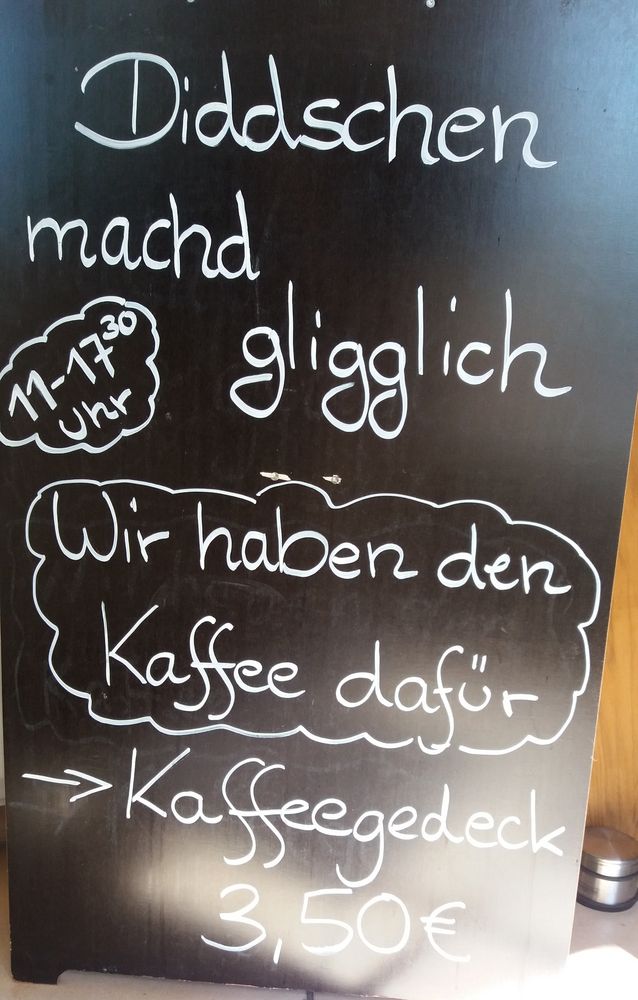 Diddschen
machd
gligglich
11-17³⁰
Uhr
Wir haben den
Kaffee dafür
→ Kaffeegedeck
3,50€